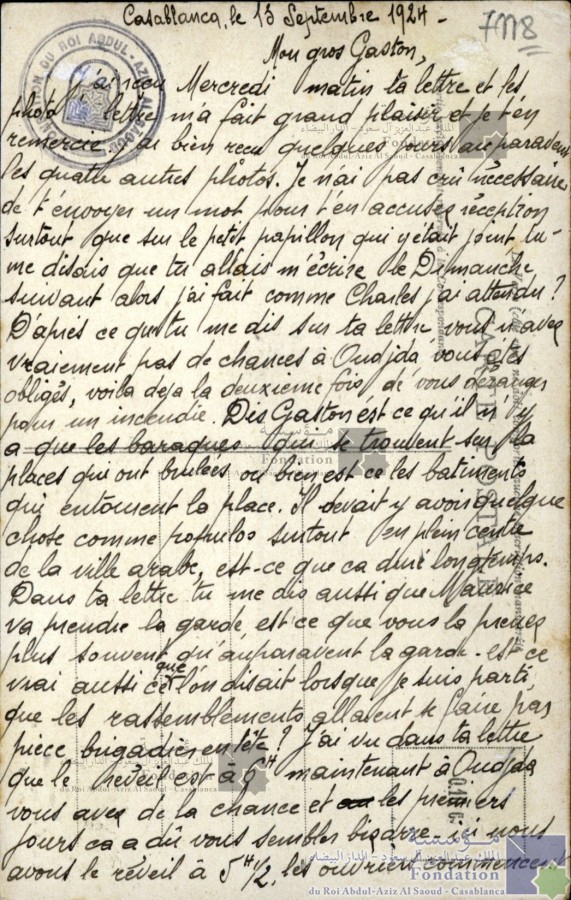 Casablanca, le 13 Septembre 1924 -
7118
Mon gros Gaston,
J'ai reçu Mercredi matin ta lettre et les
photo lettre m'a fait grand plaisir et je t'en
remercie. j'ai bien reçu quelques jours auparavant
les quatre autres photos. Je n'ai pas crû nécessaire
de t'envoyer un mot pour t'en accuser réception
surtout que sur le petit papillon qui y était joint tu
me disais que tu allais m'écrire le Dimanche
suivant alors j'ai fait comme Charles j'ai attendu?
D'après ce que tu me dis sur ta lettre vous n'avez
vraiement pas de chances à Oudjda vous êtes
obligés, voila deja la deuxieme fois de vous déranger
pour un incendie. Dis Gaston est ce qu'il n'y
a que les baraques qui se trouvent sur la
places qui ont brulées ou bien est ce les batiments
qui entourent la place. Il devait y avoir quelque
chose comme popuelos surtout en plein centre
de la ville arabe, est-ce que ca duré longtemps.
Dans ta lettre tu me dis aussi que Maurice
va prendre la garde est ce que vous la prenez
plus souvent qu'auparavent la garde - est ce
vrai aussi ce que l'on disait lorsque je suis parti
que les rassemblements allaient se faire par
piece brigadiers en tête? J'ai vu dans ta lettre
que le réveil est à 6H maintenant à Oudjda
vous avez de la chance et les premiers
jours ca a dû vous sembler bizarre - ici nous
avons le réveil à 5H 1/2, les ouvriers commencent
CARTE POSTALE
FONDATION DU ROI ABDUL-AZIZ AL SAOUD
مؤسسة
الملك عبد العزيز آل سعود - الدار البيضاء
Fondation
du Roi Abdul-Aziz Al Saoud - Casablanca